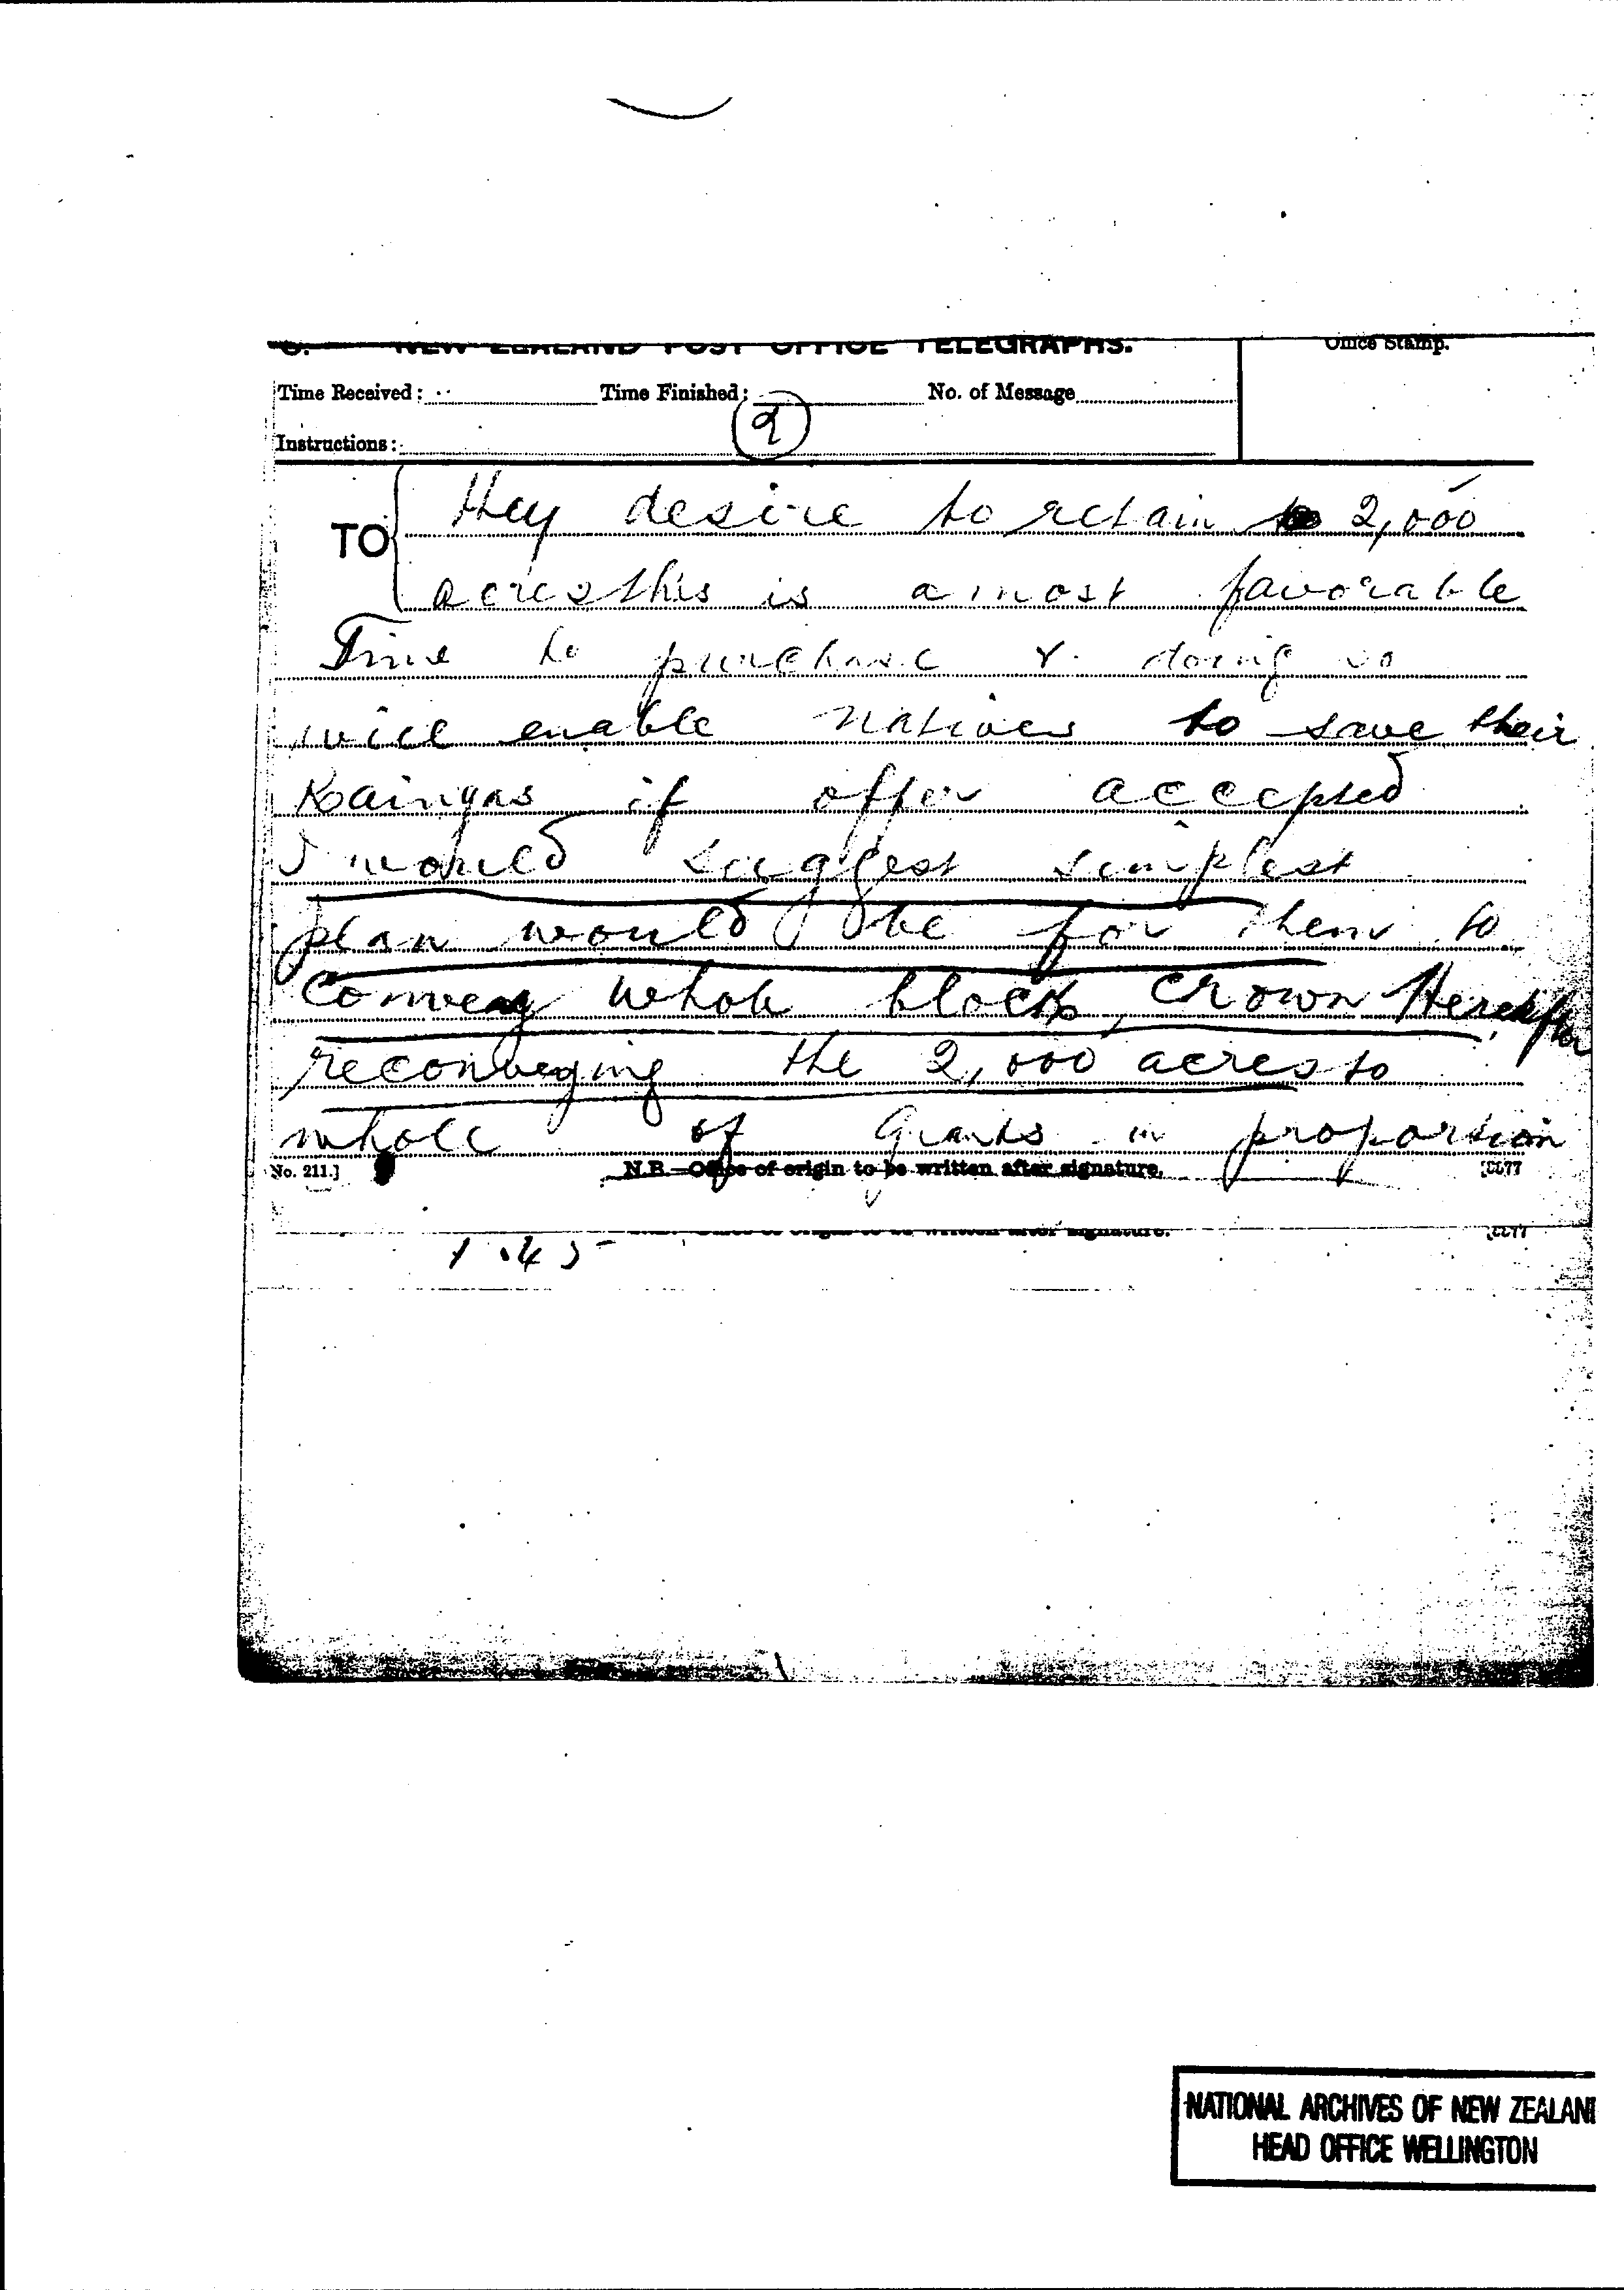 NEW ZEALAND POST OFFICE TELEGRAPHS.
Office Stamp.
Time Received: Time Finished: No. of Message
2
Instructions:
TO
they desire to retain 2,000
acres this is a most favorable
Time to purchase & doing so
will enable natives to save their
Kaingas if offer accepted
I would suggest simplest
plan would be for them to
Convey whole block, Crown thereafter
reconveying the 2,000 acres to
whole of Grants in proportion
No. 211.] N.B.—Office of origin to be written after signature.
1.45
NATIONAL ARCHIVES OF NEW ZEALAN
HEAD OFFICE WELLINGTON